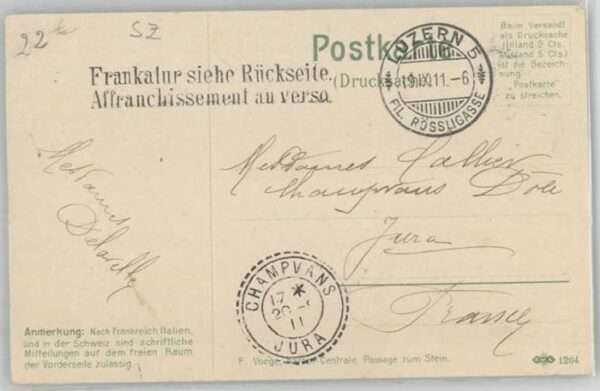 22
SZ
Postka
(Drucksache)
Beim Versandt
als Drucksache
(Inland 2 Cts.
Ausland 5 Cts.)
ist die Bezeich-
nung
"Postkarte"
zu streichen.
LUZERN 5
19.IX.11.-6
FIL. RÖSSLIGASSE
Frankatur siehe Rückseite.
Affranchissement au verso.
Mesdames
Mesdames
Champvans Dôle
Jura
France
CHAMPVANS
17 *
20
11
JURA
Anmerkung: Nach Frankreich, Italien,
und in der Schweiz sind schriftliche
Mitteilungen auf dem freien Raum
der Vorderseite zulässig.
Centrale, Passage zum Stein.
1264